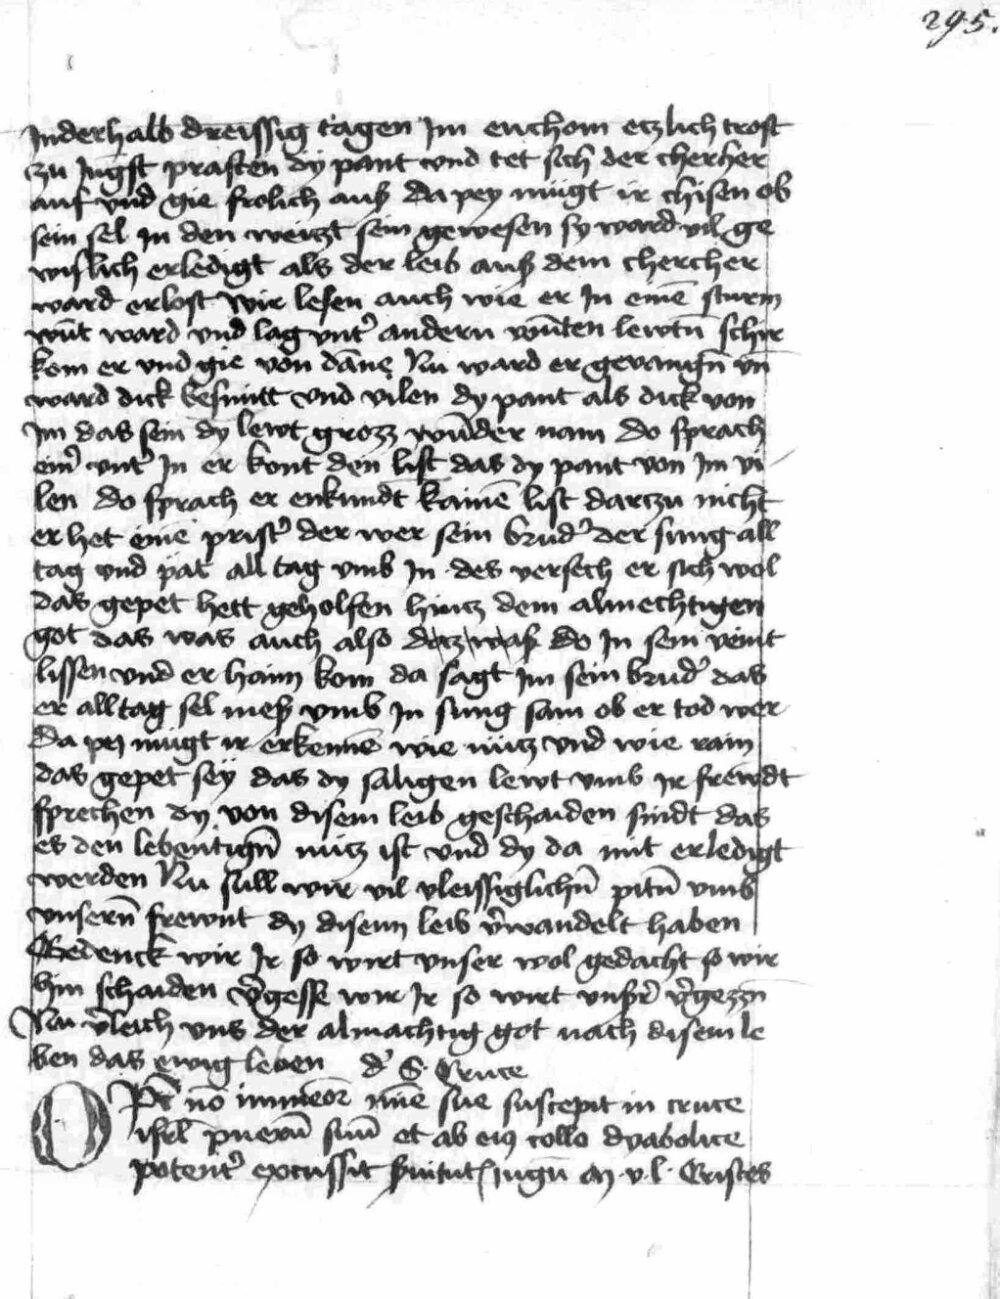 295.
Inderhalb dreissig tagen Im enchom etzlich trost
zu Iugst prasten dy pant vnd tet sich der chercher
auf vnd gie frolich auß da pey mügt ir chisen ob
sein sel in den weizt sein gewesen sy ward vil ge
wislich erledigt als der leib auß dem chercher
ward erlost Wir lesen auch wie er In einē sturm
wūt ward vnd lag vntʾ andern wūten lewtn̄ schir
kom er vnd gie von dāne Nu ward er gevangn̄ vn̄
ward dick besmitt vnd vilen dy pant als dick von
Im das sein dy lewt grozz wūnder nam do sprach
einʾ vntʾ In er kont den list das dy pant von Im vi
len do sprach er enkundt kainē list darczu nicht
er het eine pristʾ der wer sein brudʾ der sung all
tag vnd pät all tag vmb In des versech er sich wol
das gepet hett geholfen hintz dem almechtigen
got das was auch also do In sein veint
lissen vnd er haim kom da sagt Im sein brudʾ das
er alltag sel meß vmb In sung sam ob er tod wer
da pey mügt ir erkennē wie nütz vnd wie rain
das gepet sey das dy saligen lewt vmb Ir frewdt
sprechen dy von disem leib geschaiden sindt das
es den lebentign̄ nütz ist vnd dy da mit erledigt
werden Nu süll wir vil vleissiglichn̄ pitn̄ vmb
vnsern̄ frewnt dy disem leib v̾wandelt haben
Gedenck wir Ir so wirt vnser wol gedacht so wir
hin schaiden v̾gesse wir Ir so wirt vnser̄ v̾gezzn̄
Nu v̾leich vns der almachtig got nach disem le
ben das ewig leben dʾ S. Cruce
O nō suscepit in cruce
isrl̄ puerū suū et ab eiꝰ collo dyabolice
potentʾ excussit iugū Cristes